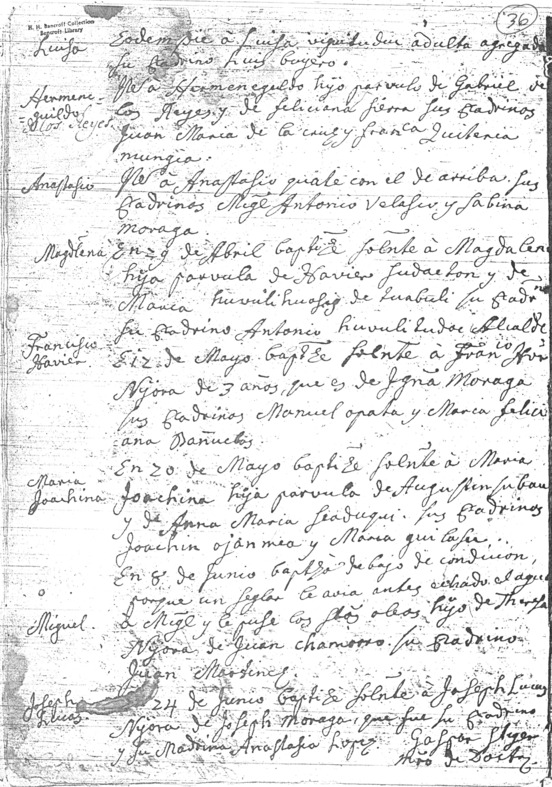 36
H. H. Bancroft Collection
Bancroft Library
Luisa
Eodem die à Luisa viquitudui adulta agregada
su Padrino Luis buyero.
Hermene-
guildo
Dlos Reyes
à Hermeneguldo hijo parvulo de Gabriel de
los Reyes, y de feliciana sierra sus Padrinos
Juan Maria de la cruz y franca Quiteria
mungia.
Anastasio
à Anastasio quate con el de arriba. sus
Padrinos Migl Antonio Velasco, y Sabina
moraga.
Magdlena
En 29 de Abril baptizè solnte à Magdalena
hija parvula de Xavier sudaeton y de
Maria huvulihuosig de tuabuli su
su Padrino Antonio huvulitudoc Alcalde
Francisco
Xavier
El 12 de Mayo baptize solnte à Franco Xver
Nijora de 3 años, que es de Igna Moraga
sus Padrinos Manuel opata y Maria felici
ana Bañuelos
Maria
Joachina
En 20 de Mayo baptize solnte à Maria
Joachina hija parvula de Augustin
y de Anna Maria siaduqui. sus Padrinos
Joachin ojanmea y Maria
En 8 de Junio baptizè debajo de condicion,
porque un seglar le avia antes echado el agua
Miguel.
à Migl y le puse los stos oleos, hijo de Theresa
Nijora de Juan chamorro. su Padrino
Juan Martines.
Joseph
Lucas
24 de Junio baptize solnte à Joseph Lucas
Nijora de Joseph Moraga, que fue su Padrino
y su Madrina Anastasia Lopez
Gaspar Stiger
Mro de Doctra